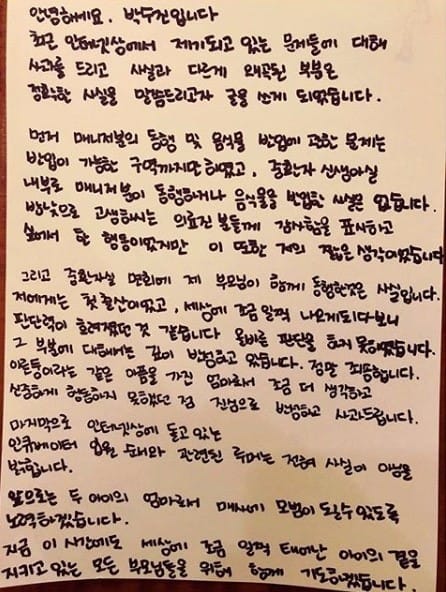 안녕하세요. 박수진입니다
최근 인터넷상에서 제기되고 있는 문제들에 대해
사과를 드리고 사실과 다르게 왜곡된 부분은
정확한 사실을 말씀드리고자 글을 쓰게 되었습니다.
먼저 매니저분의 동행 및 음식물 반입에 관한 문제는
반입이 가능한 구역까지만 하였고, 중환자 신생아실
내부로 매니저분이 동행하거나 음식물을 반입한 사실은 없습니다.
밤낮으로 고생하시는 의료진 분들께 감사함을 표시하고
싶어서 한 행동이었지만 이 또한 저의 짧은 생각이었습니다
그리고 중환자실 면회에 제 부모님이 함께 동행한것은 사실입니다.
저에게는 첫 출산이였고, 세상에 조금 일찍 나오게되다보니
판단력이 흐려졌던 것 같습니다 올바른 판단을 하지 못하였습니다.
그 부분에 대해서는 깊이 반성하고 있습니다. 정말 죄송합니다.
이른둥이라는 같은 아픔을 가진 엄마로서 조금 더 생각하고
신중하게 행동하지 못했던 점 진심으로 반성하고 사과드립니다.
마지막으로 인터넷상에 돌고 있는
인큐베이터 입원 순서와 관련된 루머는 전혀 사실이 아님을
밝힙니다.
앞으로는 두 아이의 엄마로서 매사에 모범이 될수있도록
노력하겠습니다.
지금 이 시간에도 세상에 조금 일찍 태어난 아이의 곁을
지키고 있는 모든 부모님들을 위해 함께 기도하겠습니다.